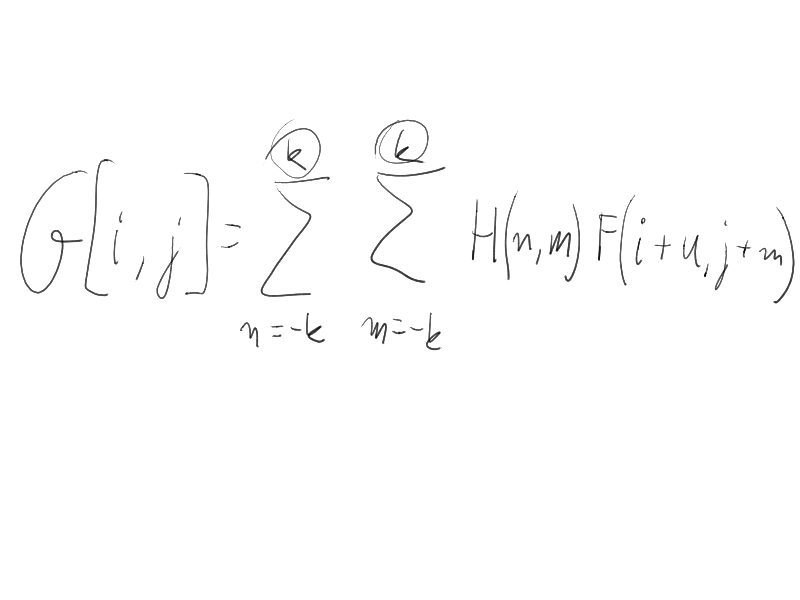 G[i,j] = \sum_{n=-k}^{k} \sum_{m=-k}^{k} H(n,m) F(i+u, j+m)